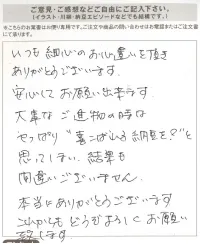 ご意見・ご感想などご自由にご記入下さい。
(イラスト・川柳・納豆エピソードなどでも結構です。)
※こちらのお葉書はお便り専用です。ご注文や商品の問い合わせはお電話またはご注文書
にて承ります。
いつも細心のお心遣いを頂き
ありがとうございます。
安心してお願い出来ます。
大事なご進物の時は
やっぱり"喜ばれる納豆を?"と
思ってしまい、結果も
間違いございません。
本当にありがとうございます
これからもどうぞよろしくお願い
致します。